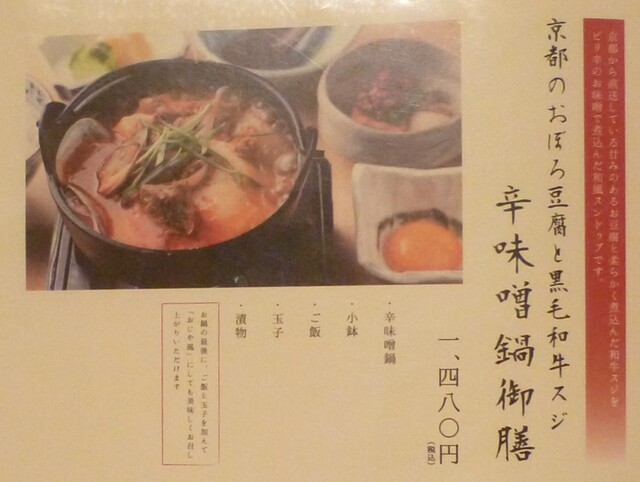 京都から直送している甘みのあるお豆腐と柔らかく煮込んだ和牛スジを
ピリ辛のお味噌で煮込んだ和風スンドゥブです。
京都のおぼろ豆腐と黒毛和牛スジ
辛味噌鍋御膳
一、四八〇円
(税込)
・辛味噌鍋
・小鉢
・ご飯
・玉子
・漬物
お鍋の最後に、ご飯と玉子を加えて
「おじや風」にしても美味しくお召し
上がりいただけます